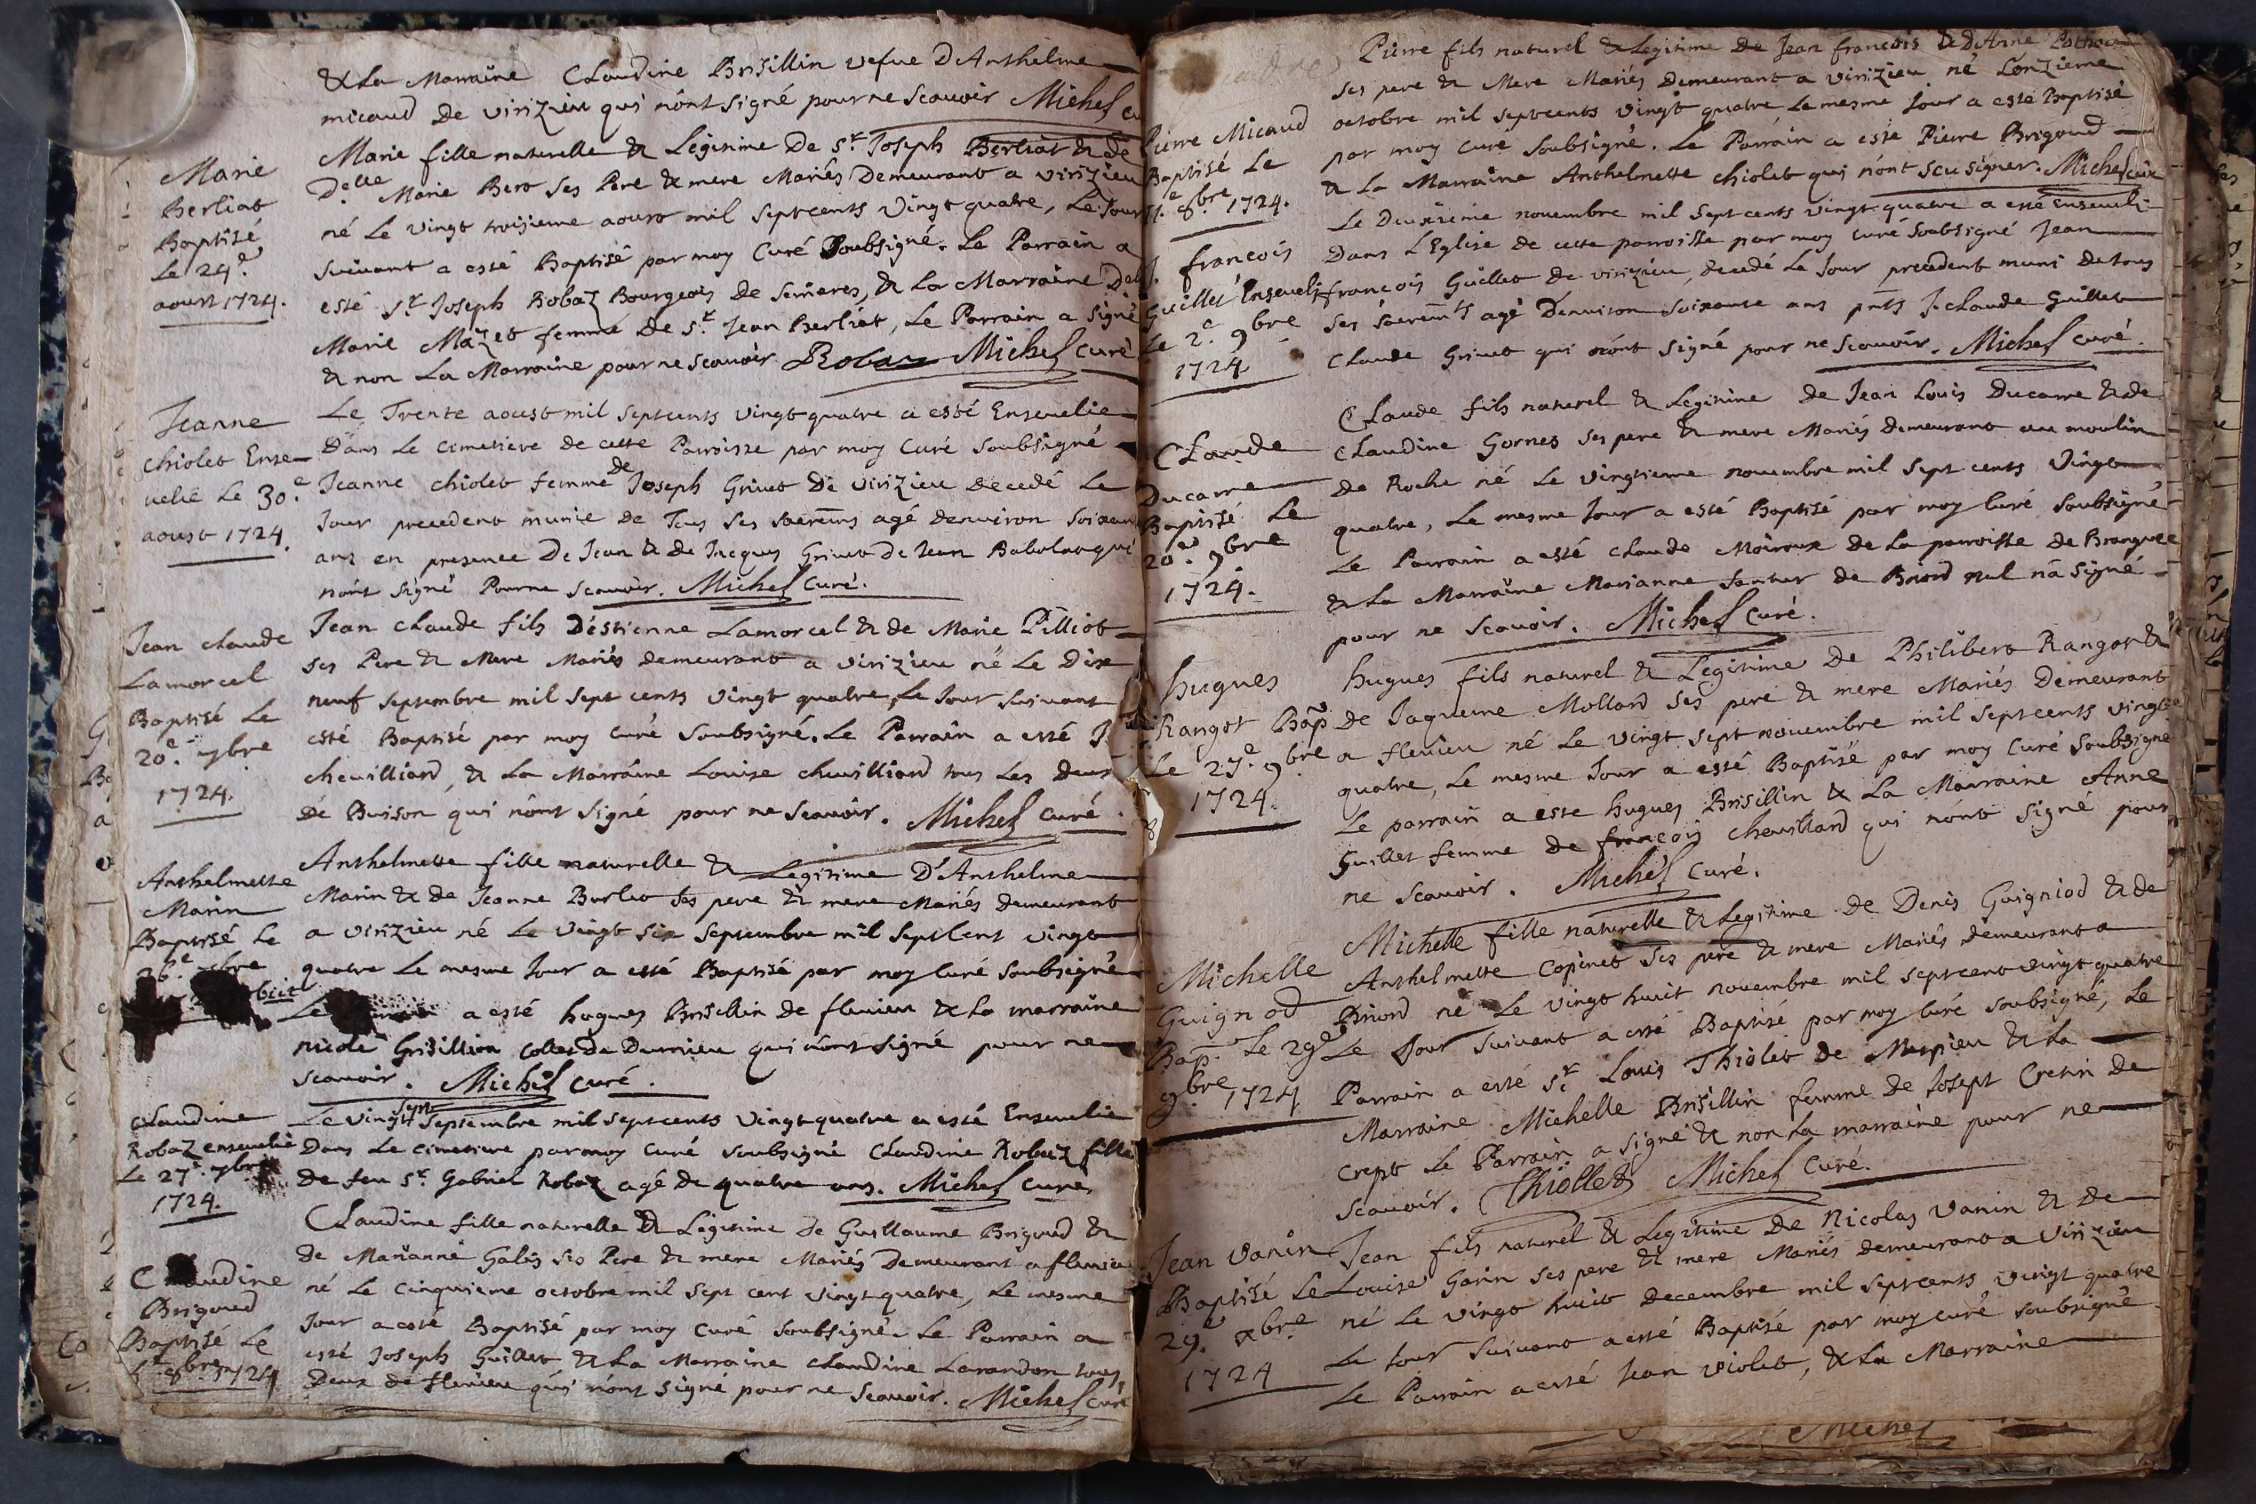 & La Marraine Claudine Brisillin vefue D'Anthelme
micaud de virizieu qui n'ont signé pour ne scauoir Michel cu
Marie
Berliat
Baptisé
Le 24e
aoust 1724.
Marie fille naturelle & Legitime De Sr Joseph Berliat & de
Delle Marie Bero ses Pere & mere Mariés Demeurant a virizieu
né Le vingt troisieme aoust mil sept cents vingt quatre, Le Jour
suiuant a esté Baptisé par moy Curé soubsigné. Le Parrain a
esté Sr Joseph Robaz Bourgeois de & La Marraine Del
Marie Mazet femme De Sr Jean Berliat, Le Parrain a signé
& non La Marraine pour ne scauoir Robaz Michel curé
Jeanne
chiolet Ense-
uelie Le 30.e
aoust 1724.
Le Trente aoust mil sept cents vingt quatre a esté Enseuelie
Dans Le cimetiere de cette Parroisse par moy Curé soubsigné
Jeanne chiolet femme de Joseph Griuet De virizieu decedé Le
Jour precedent munie de Tous ses agé denuiron soixan
ans en presence De Jean & de Jacques Griuet de Jean qui
n'ont signé Pour ne scauoir. Michel curé.
Jean claude
Lamorcel
Baptisé Le
20e. 7bre
1724.
Jean claude fils D'estienne Lamorcel & de Marie Pilliot
ses Pere & Mere Mariés demeurant a virizieu né Le Dix
neuf septembre mil sept cents vingt quatre, Le Jour suiuant
esté Baptisé par moy curé soubsigné. Le Parrain a esté J
cheuilliard, & La Marraine Louise cheuilliard tous Les deux
de Buison qui n'ont signé pour ne scauoir. Michel curé.
Anthelmette
Marin
Baptisé Le
26e 7bre
Anthelmette fille naturelle & Legitime D'Anthelme
Marin & de Jeanne Burlet ses pere & mere Mariés demeurant
a virizieu né Le vingt six septembre mil sept Cent vingt
quatre Le mesme Jour a esté Baptisé par moy curé soubsigné
Le a esté hugues Brisillin de fleuieu & La marraine
nicole Grisillion qui n'ont signé pour ne
scauoir. Michel curé.
Claudine
Robaz enseuelie
Le 27e. 7bre
1724.
Le vingt sept septembre mil sept cents vingt quatre a esté Enseuelie
Dans Le cimetiere par moy curé soubsigné Claudine Robaz fille
de feu Sr. Gabriel Robaz agé de quatre ans. Michel curé
Claudine
Brigoud
Baptisé Le
8bre 1724
Claudine fille naturelle & Legitime de Guillaume Brigoud &
de Marianne Galis ses Pere & mere Mariés Demeurant a fleuieu
né Le cinquieme octobre mil sept cent vingt quatre, Le mesme
Jour a esté Baptisé par moy curé soubsigné. Le Parrain a
esté Joseph Guillet & La Marraine Claudine Larandon tous
Deux de fleuieu qui n'ont signé pour ne scauoir. Michel curé
Pierre Micaud
Baptisé Le
11.e 8bre 1724.
Pierre fils naturel & Legitime De Jean françois & d'Anne
ses pere & Mere Mariés Demeurant a virizieu né L'onzieme
octobre mil sept cents vingt quatre, Le mesme Jour a esté Baptisé
par moy curé soubsigné. Le Parrain a este Pierre Brigoud
& La Marraine Anthelmette chiolet qui n'ont sceu signer. Michel curé
J. françois
Guillet Enseueli
Le 2.e 9bre
1724
Le Deuxieme nouembre mil sept cents vingt quatre a esté enseueli
Dans L'Eglise de cette parroisse par moy curé soubsigné Jean
françois Guillet de virizieu, decedé Le Jour precedent muni de tous
ses agé Denuiron soixante ans J. claude Guillet
Claude Griuet qui n'ont signé pour ne scauoir. Michel curé.
Claude
Ducarre
Baptisé Le
20e. 9bre
1724.
Claude fils naturel & Legitime de Jean Louis Ducarre & de
Claudine Gornes ses pere & mere Mariés demeurant au moulin
de Roche né Le vingtieme nouembre mil sept cents vingt
quatre, Le mesme Jour a esté Baptisé par moy curé soubsigné
Le Parrain a esté claude Moiroux de La parroisse de Brangue
& La Marraine Marianne de Briord nul n'a signé
pour ne scauoir. Michel curé.
hugues
Rangot Bap
Le 27.e 9bre
1724.
hugues fils naturel & Legitime De Philibert Rangot &
de Jaqueme Mollard ses pere & mere Mariés Demeurant
a fleuieu né Le vingt sept nouembre mil sept cents vingt
quatre, Le mesme Jour a esté Baptisé par moy curé soubsigné
Le parrain a este hugues Brisillin & La Marraine Anne
Guillet femme de françois cheuillard qui n'ont signé pour
ne scauoir. Michel curé.
Michelle
Guignod
Bap. Le 29e
9bre 1724
Michelle fille naturelle & Legitime de Denis Guigniod & de
Anthelmette Copinet ses pere & mere Mariés demeurant a
Briord né Le vingt huit nouembre mil sept cent vingt quatre
Le Jour suiuant a esté Baptisé par moy curé soubsigné, Le
Parrain a esté Sr. Louis Thiolet de Mespieu & La
Marraine Michelle Brisillin femme de Josept Cretin de
Crept Le Parrain a signé & non La marraine pour ne
scauoir. Thiollet Michel curé.
Jean Vanin
Baptisé Le
29.e xbre
1724
Jean fils naturel & Legitime De Nicolas Vanin & de
Louise Garin ses pere & mere Mariés demeurant a virizieu
né Le vingt huit decembre mil sept cents vingt quatre
Le Jour suiuant a esté Baptisé par moy curé soubsigné
Le Parrain a esté Jean violet, & La Marraine
Michel